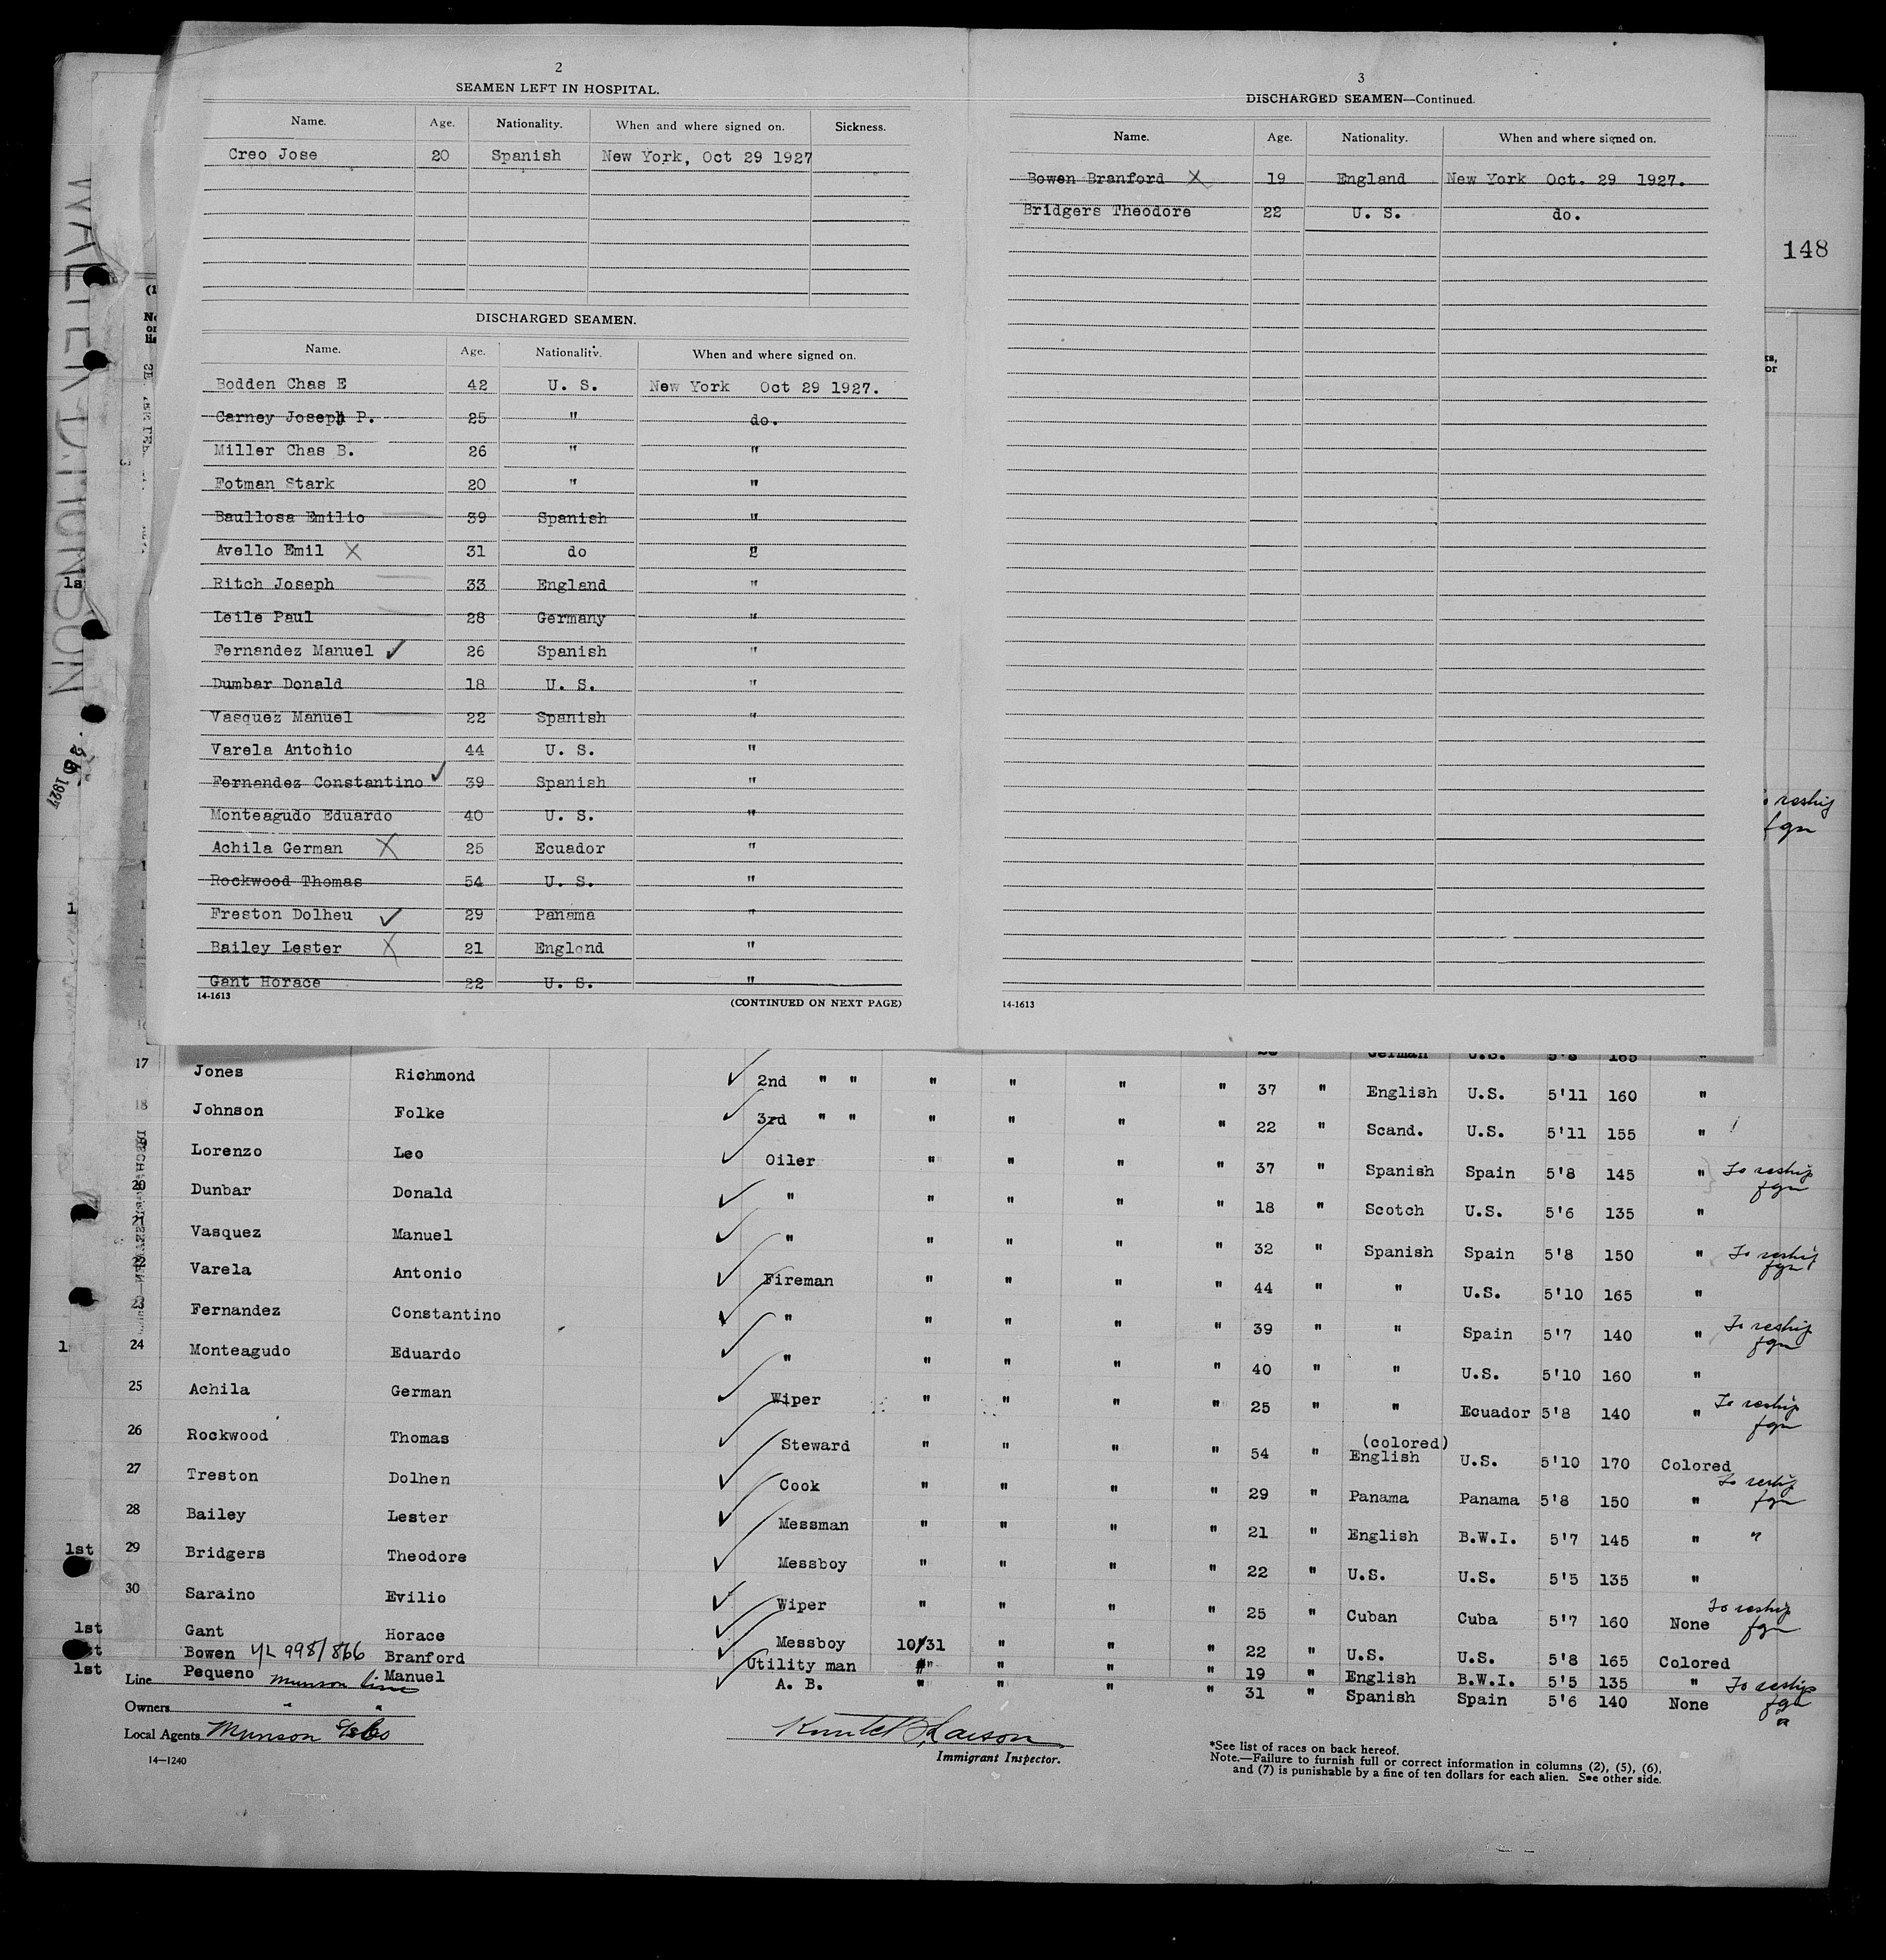 2
SEAMEN LEFT IN HOSPITAL.
Name. Age. Nationality. When and where signed on. Sickness.
Creo Jose 20 Spanish New York, Oct 29 1927
DISCHARGED SEAMEN.
Name. Age. Nationality. When and where signed on.
Bodden Chas E 42 U. S. New York Oct 29 1927.
Carney Joseph P. 25 " do.
Miller Chas B. 26 " "
Fotman Stark 20 " "
Baullosa Emilio 39 Spanish "
Avello Emil X 31 do "
Ritch Joseph 33 England "
Leile Paul 28 Germany "
Fernandez Manuel ✓ 26 Spanish "
Dumbar Donald 18 U. S. "
Vasquez Manuel 22 Spanish "
Varela Antonio 44 U. S. "
Fernandez Constantino ✓ 39 Spanish "
Monteagudo Eduardo 40 U. S. "
Achila German X 25 Ecuador "
Rockwood Thomas 54 U. S. "
Freston Dolheu ✓ 29 Panama "
Bailey Lester X 21 England "
Gant Horace 22 U. S. "
14-1613 (CONTINUED ON NEXT PAGE)
3
DISCHARGED SEAMEN—Continued.
Name. Age. Nationality. When and where signed on.
Bowen Branford X 19 England New York Oct. 29 1927.
Bridgers Theodore 22 U. S. do.
14-1613
148
WALTER D. MUNSON
1927
To reship
fgn
German U.S. 5'8 165 "
17 Jones Richmond ✓ 2nd " " " " " " 37 " English U.S. 5'11 160 "
18 Johnson Folke ✓ 3rd " " " " " " 22 " Scand. U.S. 5'11 155 "
Lorenzo Leo ✓ Oiler " " " " 37 " Spanish Spain 5'8 145 " To reship fgn
20 Dunbar Donald ✓ " " " " " 18 " Scotch U.S. 5'6 135 "
21 Vasquez Manuel ✓ " " " " " 32 " Spanish Spain 5'8 150 " To reship fgn
22 Varela Antonio ✓ Fireman " " " " 44 " " U.S. 5'10 165 "
23 Fernandez Constantino ✓ " " " " " 39 " " Spain 5'7 140 " To reship fgn
24 Monteagudo Eduardo ✓ " " " " " 40 " " U.S. 5'10 160 "
25 Achila German ✓ Wiper " " " " 25 " " Ecuador 5'8 140 " To reship fgn
26 Rockwood Thomas ✓ Steward " " " " 54 " (colored) English U.S. 5'10 170 Colored
27 Treston Dolhen ✓ Cook " " " " 29 " Panama Panama 5'8 150 " To reship fgn
28 Bailey Lester ✓ Messman " " " " 21 " English B.W.I. 5'7 145 " "
1st 29 Bridgers Theodore ✓ Messboy " " " " 22 " U.S. U.S. 5'5 135 "
30 Saraino Evilio ✓ Wiper " " " " 25 " Cuban Cuba 5'7 160 None To reship fgn
1st Gant Horace ✓ Messboy 10/31 " " " 22 " U.S. U.S. 5'8 165 Colored
1st Bowen 4L 998/866 Branford ✓ Utility man " " " " 19 " English B.W.I. 5'5 135 " To reship fgn
1st Pequeno Manuel ✓ A. B. " " " " 31 " Spanish Spain 5'6 140 None "
Line Munson Line
Owners " "
Local Agents Munson
Immigrant Inspector.
14—1240
*See list of races on back hereof.
Note.—Failure to furnish full or correct information in columns (2), (5), (6),
and (7) is punishable by a fine of ten dollars for each alien. See other side.